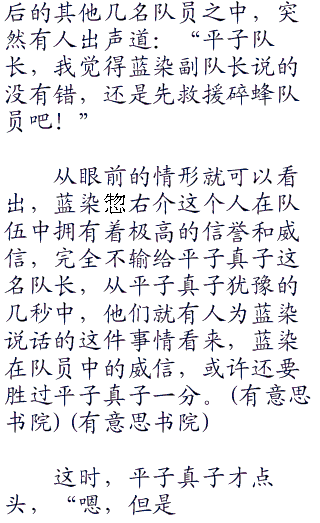 后的其他几名队员之中，突
然有人出声道：“平子队
长，我觉得蓝染副队长说的
没有错，还是先救援碎蜂队
员吧！”
从眼前的情形就可以看
出，蓝染惣右介这个人在队
伍中拥有着极高的信誉和威
信，完全不输给平子真子这
名队长，从平子真子犹豫的
几秒中，他们就有人为蓝染
说话的这件事情看来，蓝染
在队员中的威信，或许还要
胜过平子真子一分。(有意思
书院)(有意思书院)
这时，平子真子才点
头，“嗯，但是